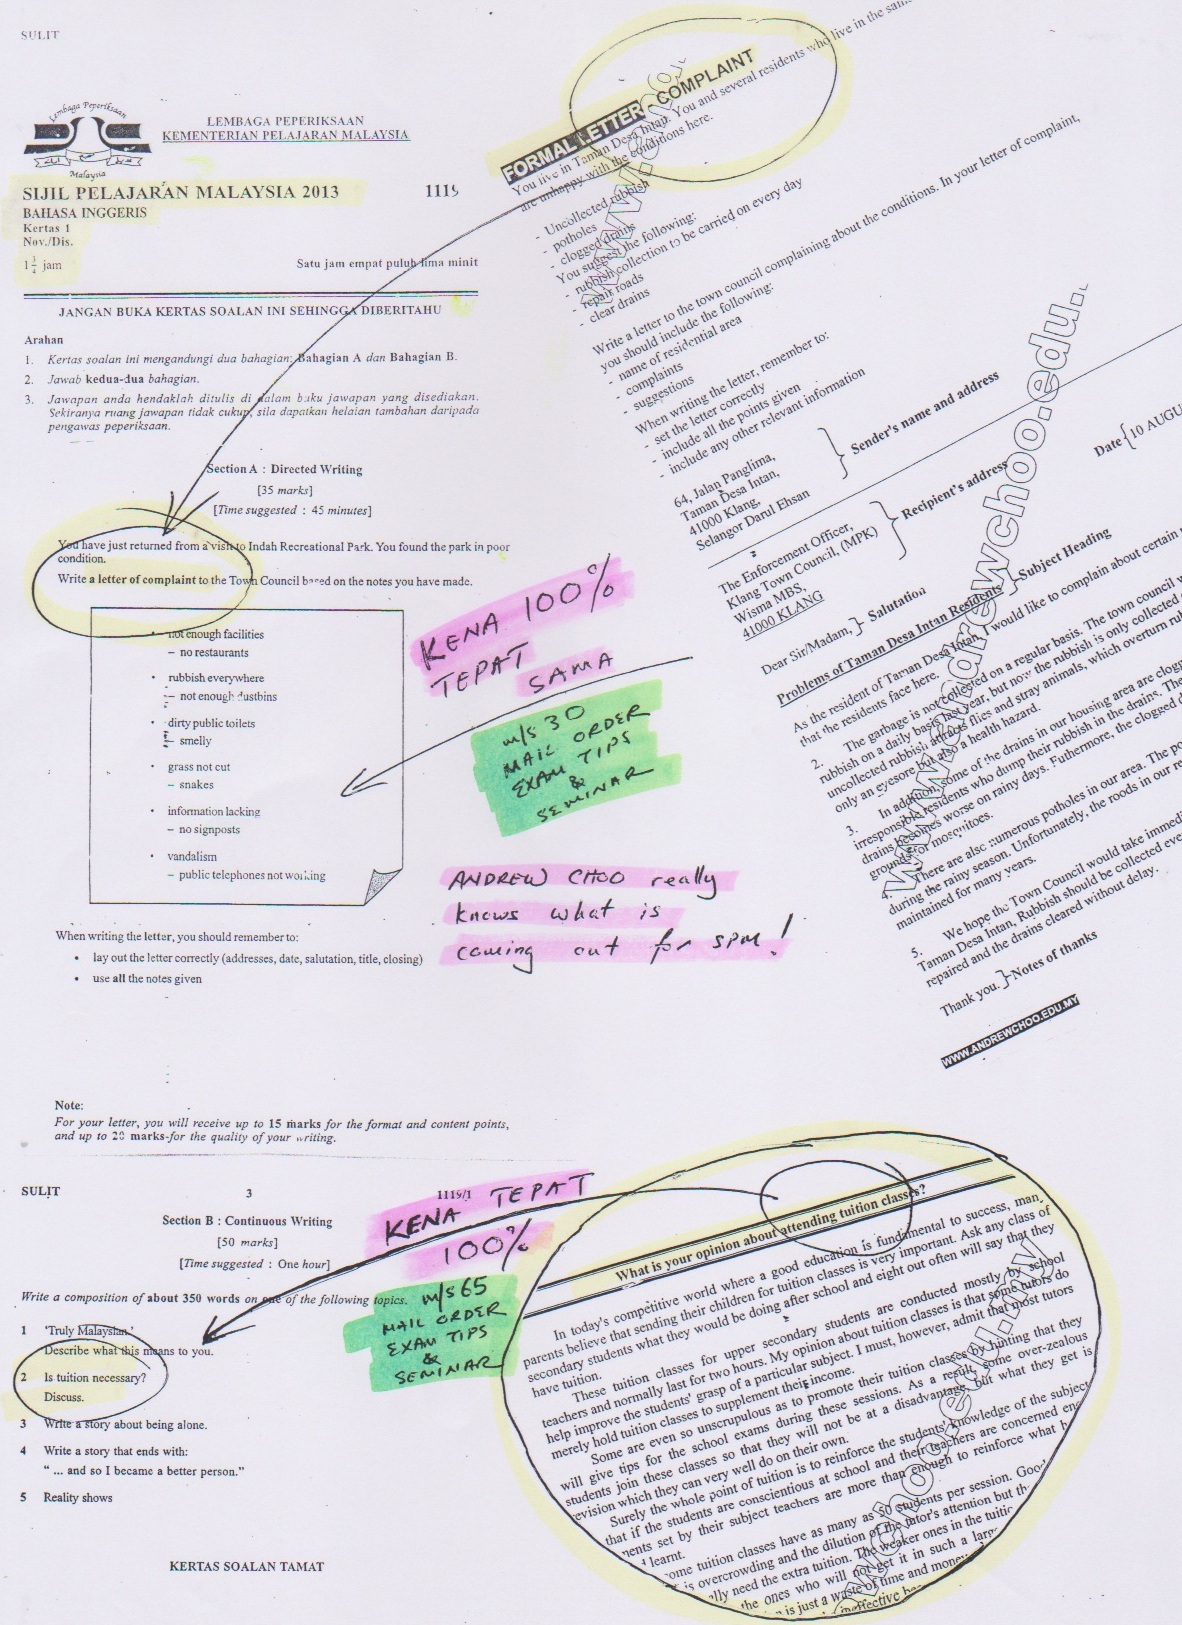 SULIT
Lembaga Peperiksaan
Malaysia
LEMBAGA PEPERIKSAAN
KEMENTERIAN PELAJARAN MALAYSIA
SIJIL PELAJARAN MALAYSIA 2013
1119
BAHASA INGGERIS
Kertas 1
Nov./Dis.
1 3/4 jam
Satu jam empat puluh lima minit
JANGAN BUKA KERTAS SOALAN INI SEHINGGA DIBERITAHU
Arahan
1. Kertas soalan ini mengandungi dua bahagian: Bahagian A dan Bahagian B.
2. Jawab kedua-dua bahagian.
3. Jawapan anda hendaklah ditulis di dalam buku jawapan yang disediakan.
Sekiranya ruang jawapan tidak cukup, sila dapatkan helaian tambahan daripada
pengawas peperiksaan.
Section A : Directed Writing
[35 marks]
[Time suggested : 45 minutes]
You have just returned from a visit to Indah Recreational Park. You found the park in poor
condition.
Write a letter of complaint to the Town Council based on the notes you have made.
• not enough facilities
– no restaurants
• rubbish everywhere
– not enough dustbins
• dirty public toilets
– smelly
• grass not cut
– snakes
• information lacking
– no signposts
• vandalism
– public telephones not working
When writing the letter, you should remember to:
• lay out the letter correctly (addresses, date, salutation, title, closing)
• use all the notes given
Note:
For your letter, you will receive up to 15 marks for the format and content points,
and up to 20 marks for the quality of your writing.
SULIT
3
1119/1
Section B : Continuous Writing
[50 marks]
[Time suggested : One hour]
Write a composition of about 350 words on one of the following topics.
1 'Truly Malaysian.'
Describe what this means to you.
2 Is tuition necessary?
Discuss.
3 Write a story about being alone.
4 Write a story that ends with:
" ... and so I became a better person."
5 Reality shows
KERTAS SOALAN TAMAT
KENA 100%
TEPAT
SAMA
m/s 30
MAIL ORDER
EXAM TIPS
&
SEMINAR
ANDREW CHOO really
knows what is
coming out for SPM!
KENA TEPAT
100%
m/s 65
MAIL ORDER
EXAM TIPS
&
SEMINAR
FORMAL LETTER - COMPLAINT
You live in Taman Desa Intan. You and several residents who live in the
are unhappy with the conditions here.
- Uncollected rubbish
- potholes
- clogged drains
You suggest the following:
- rubbish collection to be carried on every day
- repair roads
- clear drains
Write a letter to the town council complaining about the conditions. In your letter of complaint,
you should include the following:
- name of residential area
- complaints
- suggestions
When writing the letter, remember to:
- set the letter correctly
- include all the points given
- include any other relevant information
64, Jalan Panglima,
Taman Desa Intan,
41000 Klang,
Selangor Darul Ehsan
Sender's name and address
The Enforcement Officer,
Klang Town Council, (MPK)
Wisma MBS,
41000 KLANG
Recipient's address
Date {10
Dear Sir/Madam, }- Salutation
Problems of Taman Desa Intan Residents }Subject Heading
As the resident of Taman Desa Intan, I would like to complain about certain
that the residents face here.
2. The garbage is not collected on a regular basis. The town council
rubbish on a daily basis last year, but now the rubbish is only collected
uncollected rubbish attracts flies and stray animals, which overturn
only an eyesore but also a health hazard.
3. In addition, some of the drains in our housing area are
irresponsible residents who dump their rubbish in the drains.
drains becomes worse on rainy days. Futhermore, the clogged
grounds for mosquitoes.
4. There are also numerous potholes in our area. The
during the rainy season. Unfortunately, the roods in our
maintained for many years.
5. We hope the Town Council would take
Taman Desa Intan, Rubbish should be collected
repaired and the drains cleared without delay.
Thank you. }-Notes of thanks
WWW.ANDREWCHOO.EDU.MY
www.andrewchoo.edu.
What is your opinion about attending tuition classes?
In today's competitive world where a good education is fundamental to success,
parents believe that sending their children for tuition classes is very important. Ask any class of
secondary students what they would be doing after school and eight out often will say that they
have tuition.
These tuition classes for upper secondary students are conducted mostly by school
teachers and normally last for two hours. My opinion about tuition classes is that some tutors do
help improve the students' grasp of a particular subject. I must, however, admit that most tutors
merely hold tuition classes to supplement their income.
Some are even so unscrupulous as to promote their tuition classes by hinting that they
will give tips for the school exams during these sessions. As a result, some over-zealous
students join these classes so that they will not be at a disadvantage, but what they get is
revision which they can very well do on their own.
Surely the whole point of tuition is to reinforce the students' knowledge of the subject
that if the students are conscientious at school and their teachers are concerned
set by their subject teachers are more than enough to reinforce what
learnt.
tuition classes have as many as 50 students per session.
is overcrowding and the dilution of the tutor's attention but
need the extra tuition. The weaker ones in the
the ones who will not get it in such a
is just a waste of time and
ineffective